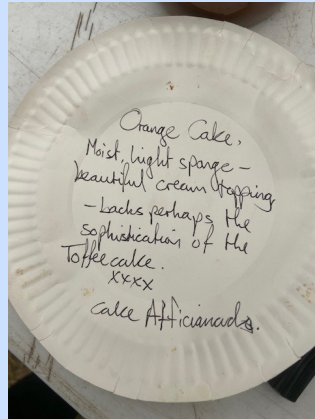 Orange Cake,
Moist, light sponge –
beautiful cream topping
– Lacks perhaps the
sophistication of the
Toffeecake.
xxxx
Cake Afficianado.